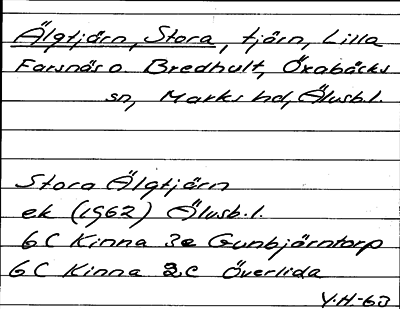 Älgtjärn, Stora, tjärn, Lilla
Farsnäs o. Bredhult, Öxabäcks
sn, Marks hd, Älvsb.l.
Stora Älgtjärn
ek (1962) Älvsb.l.
6C Kinna 3e Gunbjärntorp
6C Kinna 2c Överlida
Y.H-63